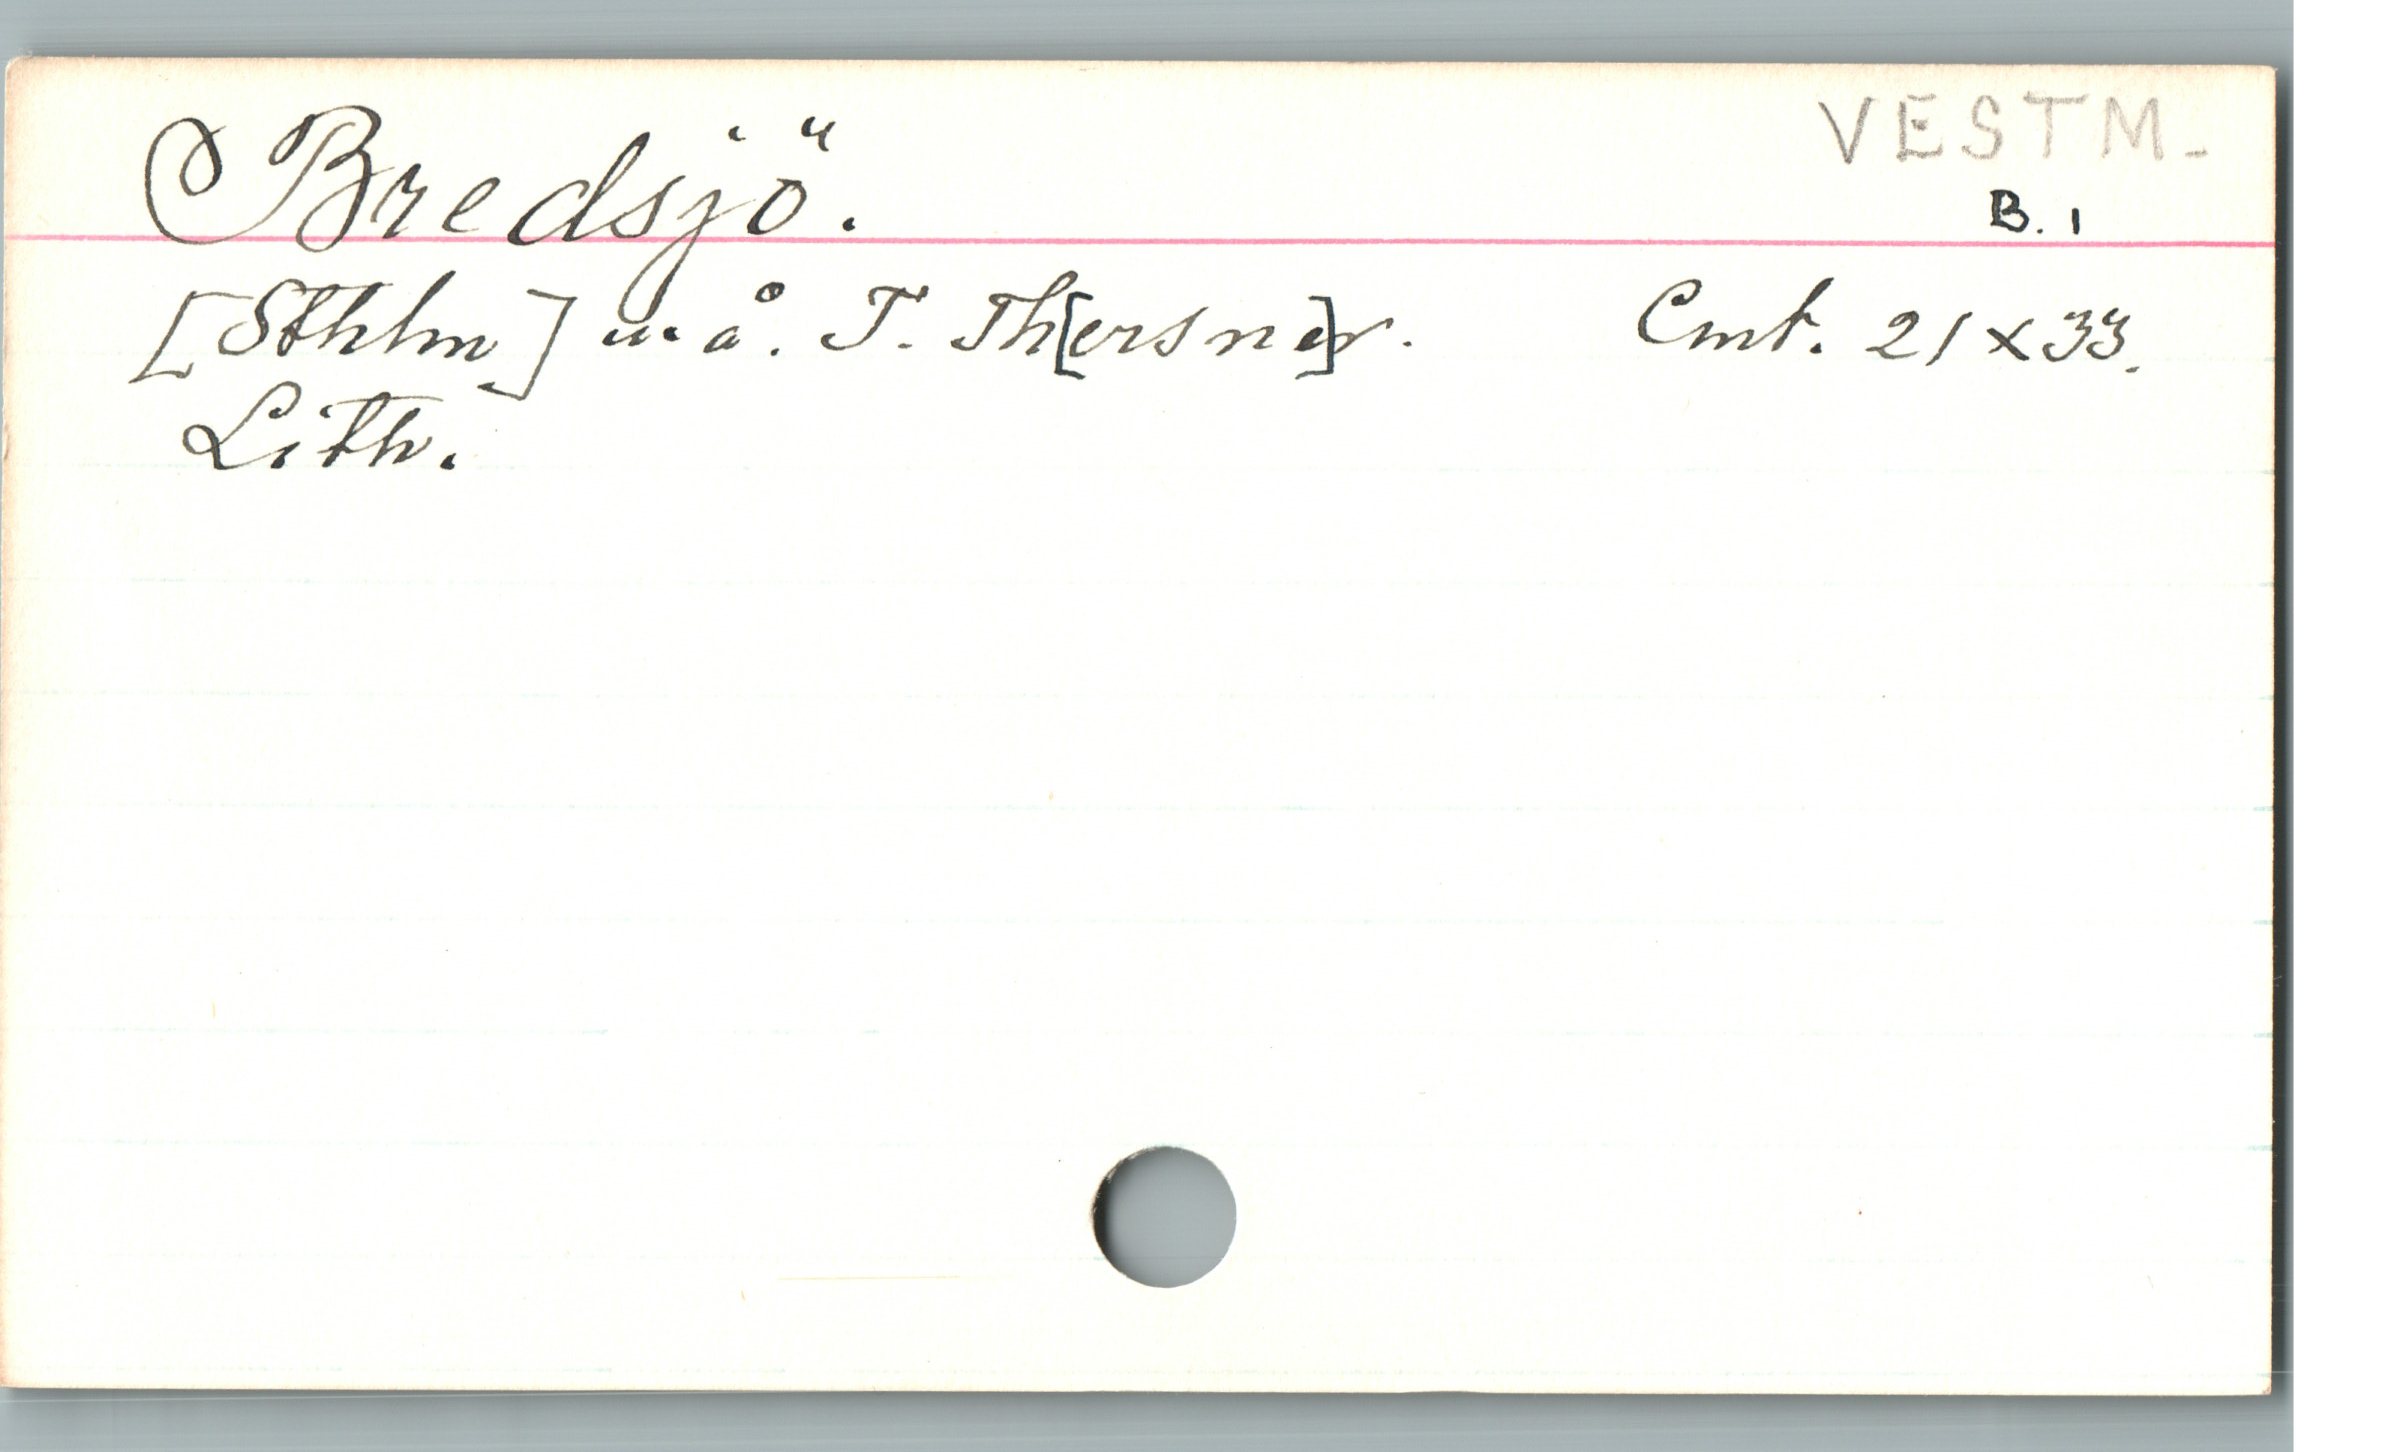 Bredsjö.
VESTM.
B. 1
[Sthlm.] u. å. T. Th[ersne]r. Cmt. 21 x 33.
Lith.